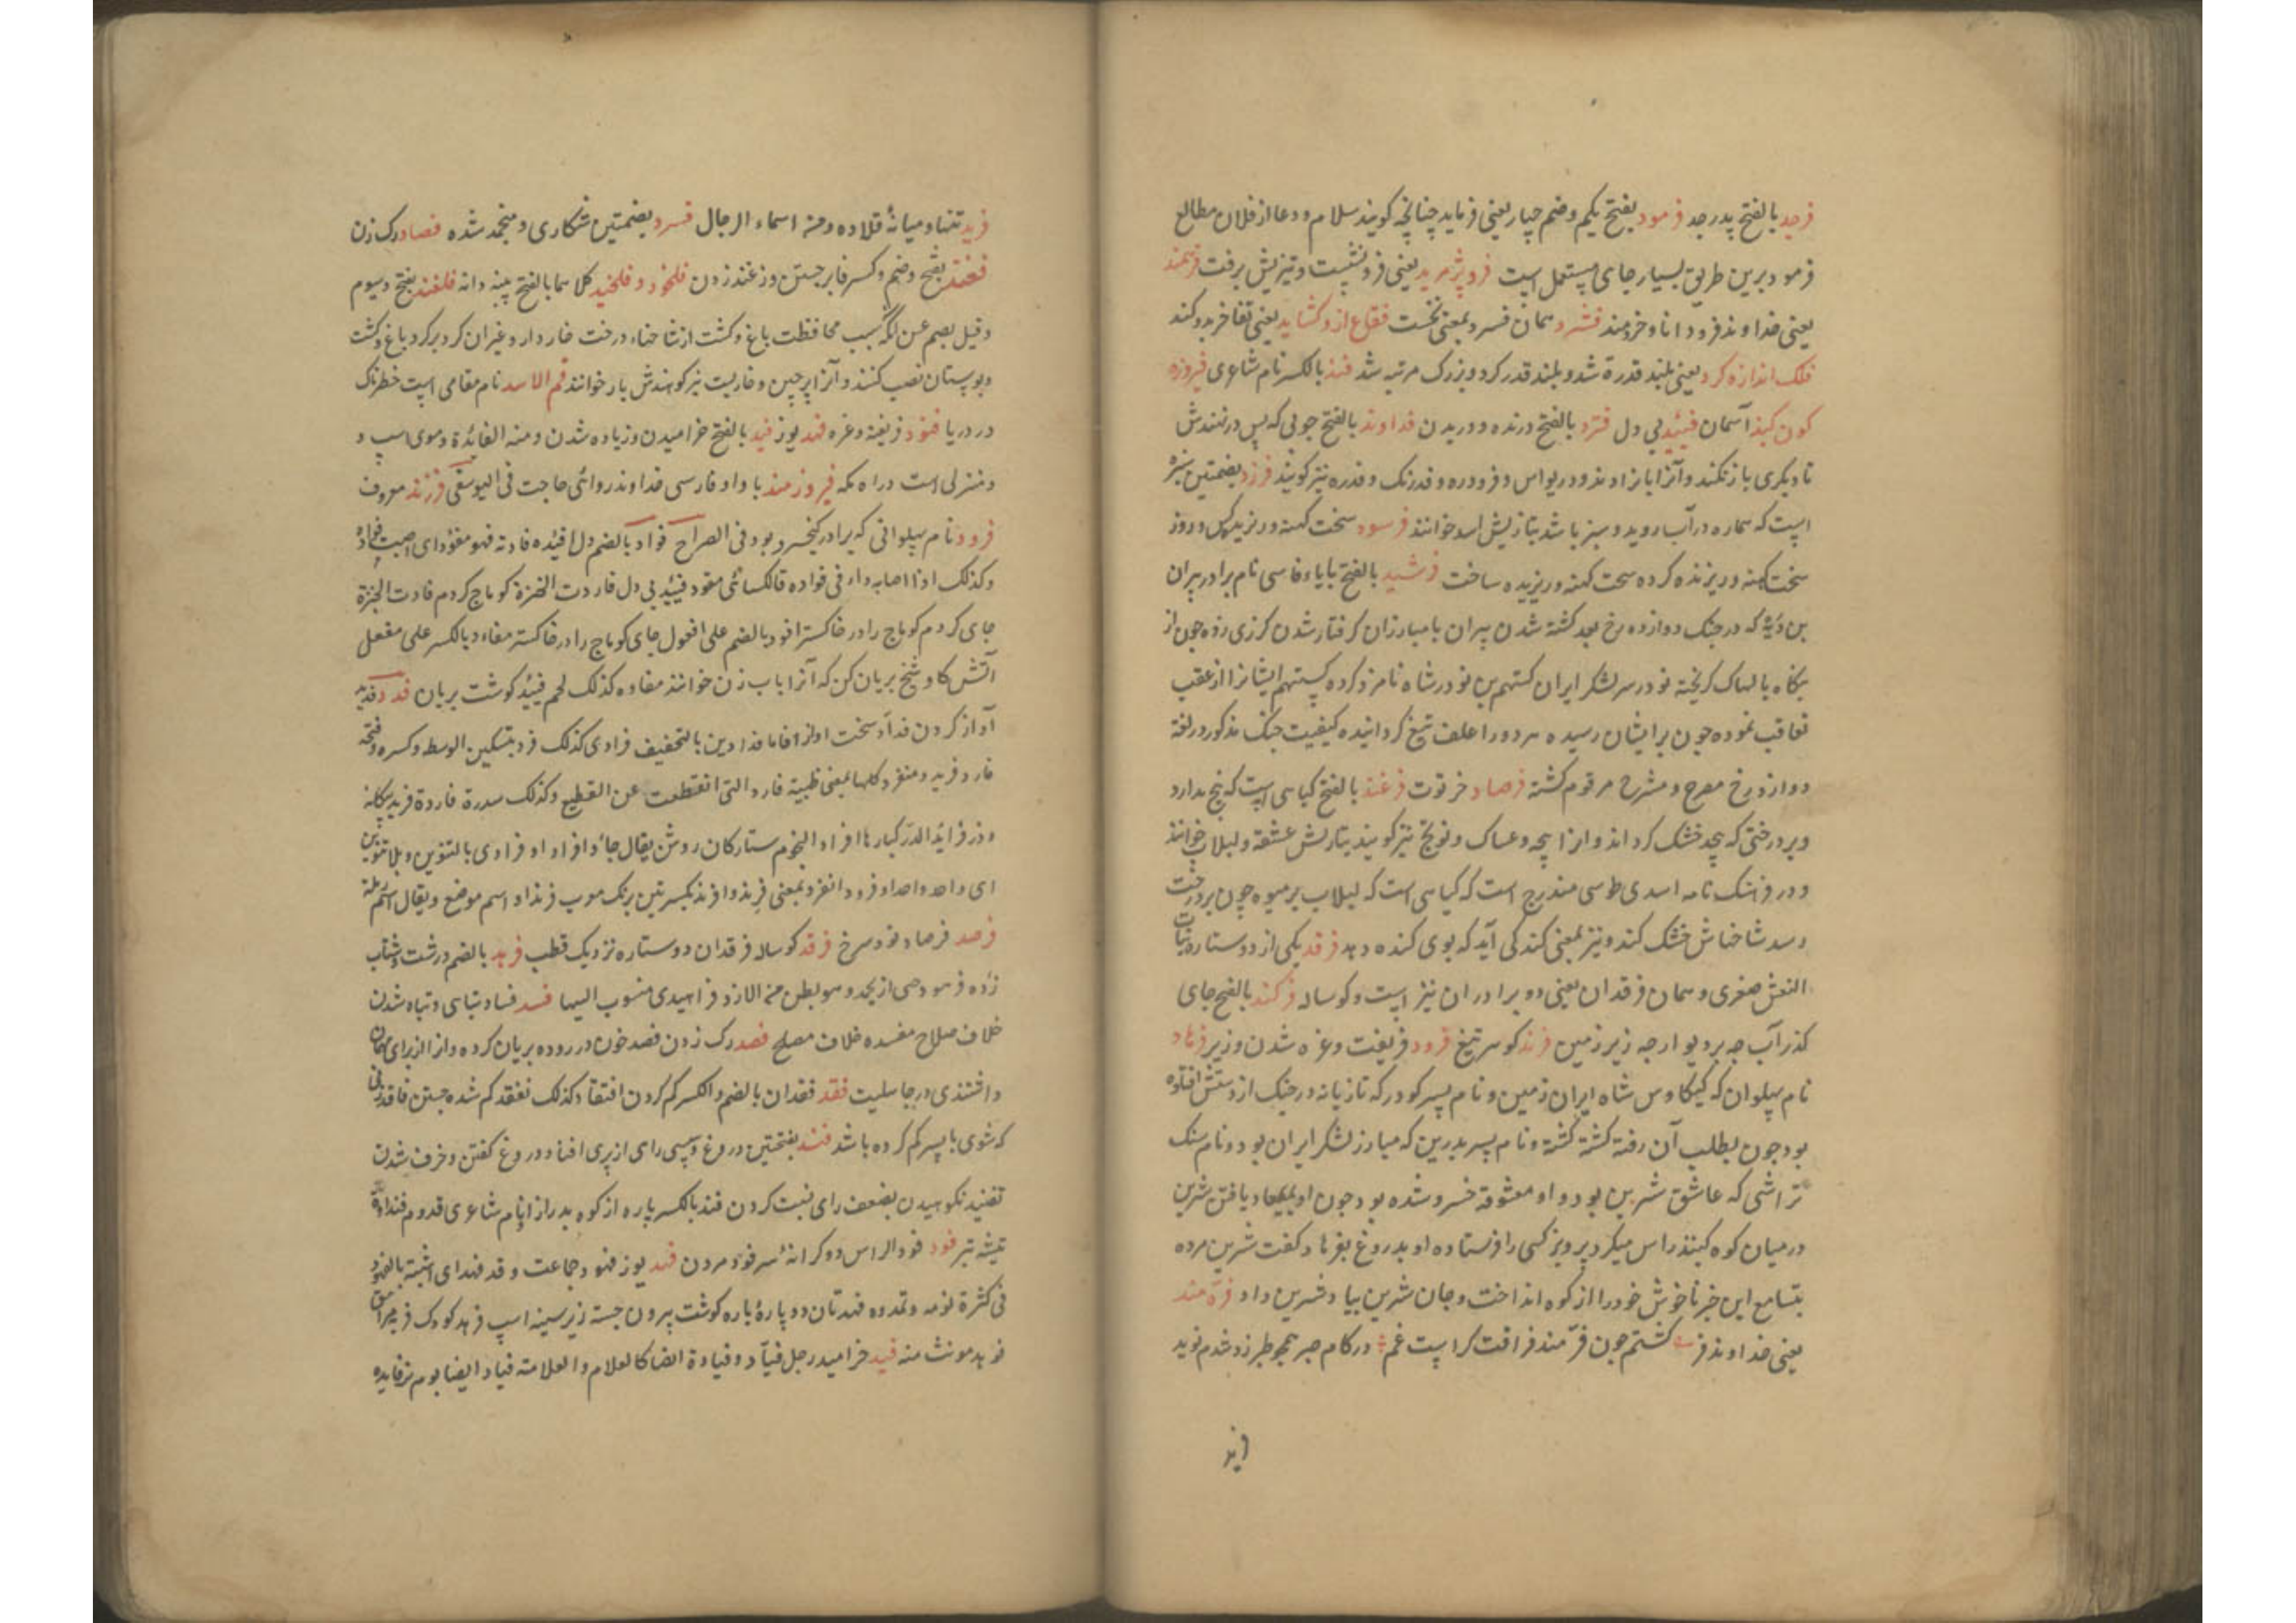 فرجد بالفتح پدر جد فرمود بفتح یکم و ضم چهار یعنی فرماید چنانچه کویند سلام و دعا از فلان مطالع
فرمود برین طریق بسیار جای مستعمل است یعنی فرو نشست و تیزیش برفت فرهمند
یعنی خداوند فرو دانا و خردمند فشرد همان فسرد بمعنی نخست فقاع از و کشاید یعنی تفاخر بدو کند
فلک اندازه کرد یعنی بلند قدرة شد و بلند قدر کرد و بزرک مرتبه شد فند بالکسر نام شاعری فیروزه
کون کنبد آسمان فئید بی دل بالفتح درنده و دریدن فداوند بالفتح چوبی که پس در نهندش
تا دیکری باز نکند و آنرا و فدرنک و فدره نیز کویند فرزد بضمتین سبزه
است که هماره در آب روید و سبز باشد بتازیش خوانند فرسود سخت کهنه و ریزید
سخت کهنه و ریزنده کرده سخت کهنه و ریزیده ساخت فرشید بالفتح بایاء فارسی نام برادر پیران
بن ویسه که در جنک دوازده رخ بعد کشته شدن پیران با مبارزان کرفتار شدن
بکاه بالهاک کریخته نوذر سر لشکر ایران کستهم بن نوذر شاه نامزد کرده کستهم ایشانرا از عقب
تعاقب نموده چون بر ایشان رسیده هر دو را علف تیغ کردانیده کیفیت جنک مذکور در لغة
دوازده رخ مصرح و مشرح مرقوم کشته فرصاد خرتوت فرغند بالفتح کیاهی است که بیخ ندارد
و بر درختی که پیچد خشک کرداند و انرا پیچه و عساک و نویج نیز کویند بتازیش عشقه و لبلاب خوانند
و در فرهنک نامه اسدی طوسی مندرج است که کیاهی است که لبلاب بر میوه چون بر درخت
رسد شاخهاش خشک کند و نیز بمعنی کندکی آید که بوی کنده دهد فرقد یکی از دو ستاره بنات
النعش صغری و همان فرقدان یعنی دو برادران نیز است و کوساله فرکند بالفتح جای
کذر آب چه بر دیوار چه زیر زمین فرند کوهر تیغ فرود فریفت و غره شدن و زیر فرهاد
نام پهلوان که کیکاوس شاه ایران زمین و نام پسر کودرز که تازیانه در جنک از دستش افتاده
بود چون بطلب آن رفته کشته کشته و نام پسر که مبارز لشکر ایران بود و نام سنک
تراشی که عاشق شیرین بود و او معشوقه خسرو شده بود چون او بمیعاد یافتن شیرین
در میان کوه کنند راس میکرد پرویز کسی را فرستاده او بدروغ بفرهاد کفت شیرین مرده
بتسامع این خبر ناخوش خود را از کوه انداخت و جان شیرین بیاد شیرین داد فره مند
یعنی خداوند فر کشتم چون فره مند فراقت کراست غم در کام صبر همچو طبرزد شدم نوید
فرید تنها و میانهٔ قلاده و منه اسماء الرجال فسرد بضمتین شکاری و منجمد شده فصاد رک زن
بفتح و ضم و کسر فا برجستن و زغند زدن فلخود و فلخید کلاهما بالفتح پنبه دانه فلغند بفتح و سیوم
و قیل بضم عن لکه سبب محافظت باغ و کشت از شاخهاء درخت خاردار و غیران کرد بر کرد باغ و کشت
و بوستان نصب کنند و آنرا پرچین و خاربست نیز کویند هندش بار خوانند فم الاسد نام مقامی است خطرناک
در دریا فنود فریفته و غره فهد یوز فید بالفتح خرامیدن و زیاده شدن و منه الفائدة و موی اسپ و
و منزلی است در راه مکه فیروزمند با واو فارسی خداوند روائی حاجت فی الیوسفی فرزند معروف
فرود نام پهلوانی که برادر کیخسرو بود فی الصراح فواد بالضم دل افئده فادته فهو مفؤد ای اصبت فواده
و کذلک اذا اصابه داء فی فواده قالکسائی مفود فئید بی دل فادت الخبزة کوماج کردم فادت الخبزة
جای کردم کوماج را در خاکستر افود بالضم علی افعول جای کوماج را در خاکستر مفاد بالکسر علی مفعل
آتش کاو سیخ بریان کن که آنرا باب زن خوانند مفاده کذلک لحم فئید کوشت بریان فدد فدید
آواز کردن فداد سخت آواز بالتخفیف فرادی کذلک فرد بتسکین الوسط و کسره و فتحه
فارد فرید و منفرد کلها بمعنی ظبیة فارد التی انقطعت عن القطیع و کذلک سدرة فاردة فرید یکانه
و در فراید الدر کبارها افراد النجوم ستارکان روشن یقال جاؤا فرادا و فرادی بالتنوین و بلا تنوین
ای واحدا واحدا و فرود انفرد بمعنی فرند و افرند بکسرتین برنک معرب فرنداد اسم موضع و یقال اسم رملة
فرصد فرصاد توت سرخ فرقد کوساله فرقدان دو ستاره نزدیک قطب فرهد بالضم درشت و شتاب
زده فرهود حی از یحمد و هو بطن من الازد فراهیدی منسوب الیها فسد فساد تباهی و تباه شدن
خلاف صلاح مفسده خلاف مصلح فصد رک زدن فصد خون در روده بریان کرده و از الزبرای مهمان
داشتندی در جاهلیت فقد فقدان بالضم و الکسر کم کردن افتقاد کذلک تفقد کم شده جستن فاقد زنی
که شوی یا پسر کم کرده باشد فند بفتحتین دروغ و سستی رای از پیری افناد دروغ کفتن و خرف شدن
تفنید نکوهیدن بضعف رای نسبت کردن فند بالکسر پاره از کوه بدراز او نام شاعری قدوم فنداوة
تیشه تبر فود فود الراس دو کرانهٔ سر فود مردن فهد یوز فهود جماعت و قد فهد ای اشبه بالفهود
فی کثرة نومه و تمدده فهدتان دو پارهٔ پاره کوشت بیرون جسته زیر سینه اسپ فرهد کودک فربه مراهق
فوهد مونث منه فید خرامید رجل فیاد و فیادة ایضا کالعلام و العلامة فیاد ایضا بوم نر فایده
فرید